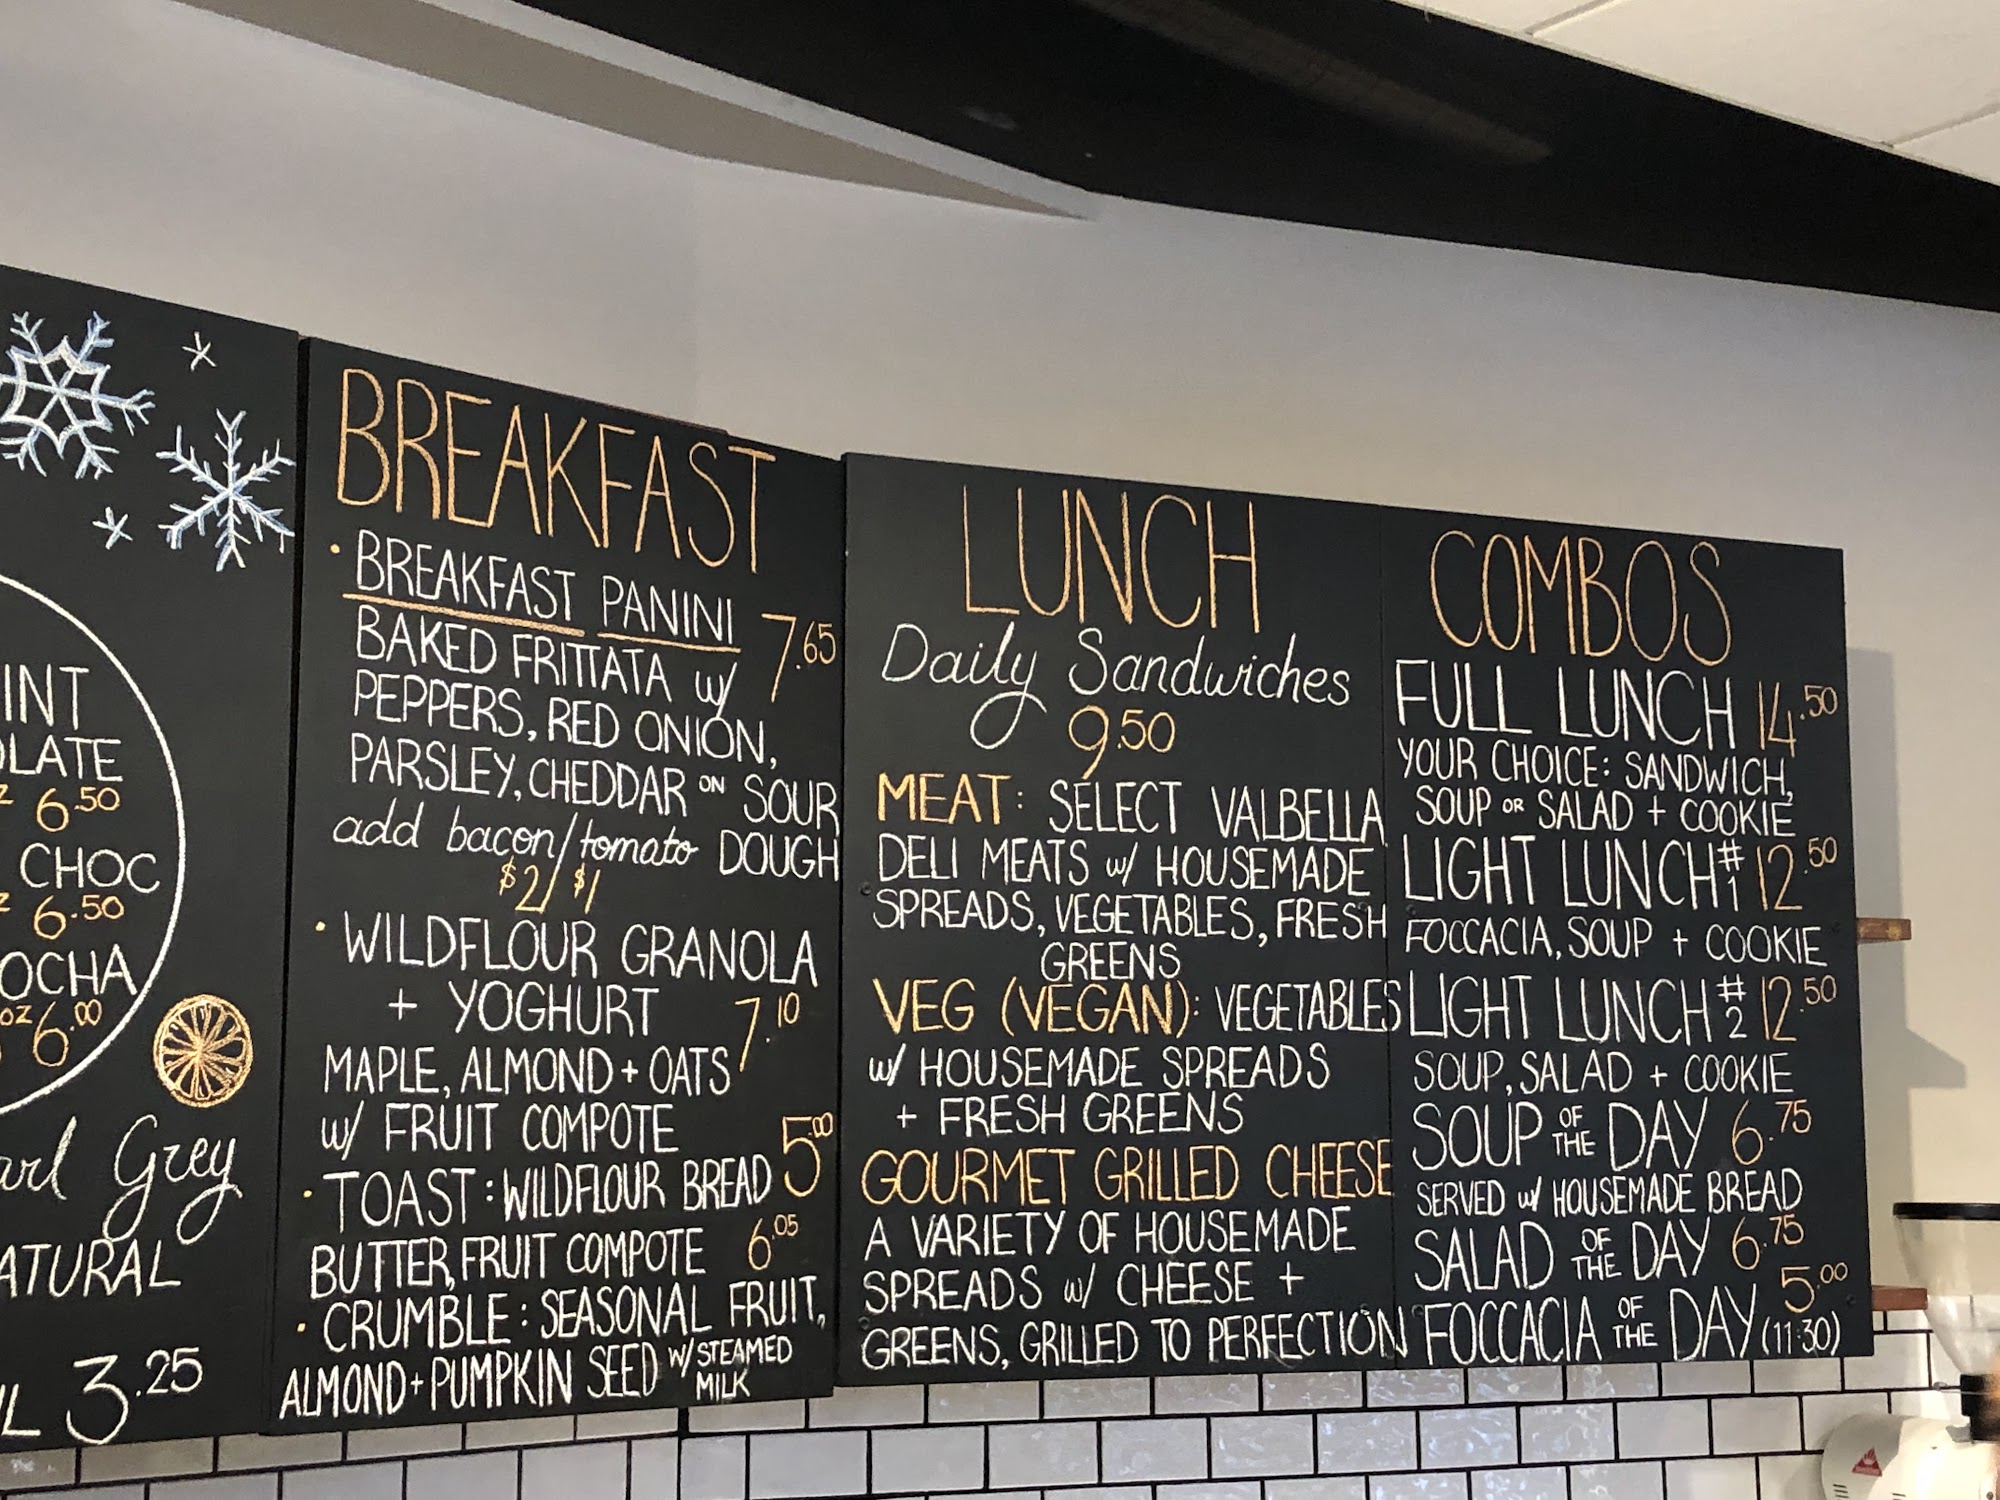 INT
OLATE
6.50
CHOC
6.50
OCHA
OZ 6.00
Grey
ATURAL
3.25
BREAKFAST
• BREAKFAST PANINI 7.65
BAKED FRITTATA w/
PEPPERS, RED ONION,
PARSLEY, CHEDDAR ON SOUR
add bacon/tomato DOUGH
$2/ $1
• WILDFLOUR GRANOLA
+ YOGHURT 7.10
MAPLE, ALMOND + OATS
w/ FRUIT COMPOTE
• TOAST: WILDFLOUR BREAD 5.00
BUTTER, FRUIT COMPOTE 6.05
• CRUMBLE: SEASONAL FRUIT,
ALMOND + PUMPKIN SEED W/ STEAMED
MILK
LUNCH
Daily Sandwiches
9.50
MEAT: SELECT VALBELLA
DELI MEATS w/ HOUSEMADE
SPREADS, VEGETABLES, FRESH
GREENS
VEG (VEGAN): VEGETABLES
w/ HOUSEMADE SPREADS
+ FRESH GREENS
GOURMET GRILLED CHEESE
A VARIETY OF HOUSEMADE
SPREADS w/ CHEESE +
GREENS, GRILLED TO PERFECTION
COMBOS
FULL LUNCH 14.50
YOUR CHOICE: SANDWICH,
SOUP OR SALAD + COOKIE
LIGHT LUNCH #1 12.50
FOCCACIA, SOUP + COOKIE
LIGHT LUNCH #2 12.50
SOUP, SALAD + COOKIE
SOUP OF THE DAY 6.75
SERVED w/ HOUSEMADE BREAD
SALAD OF THE DAY 6.75
FOCCACIA OF THE DAY 5.00 (11:30)